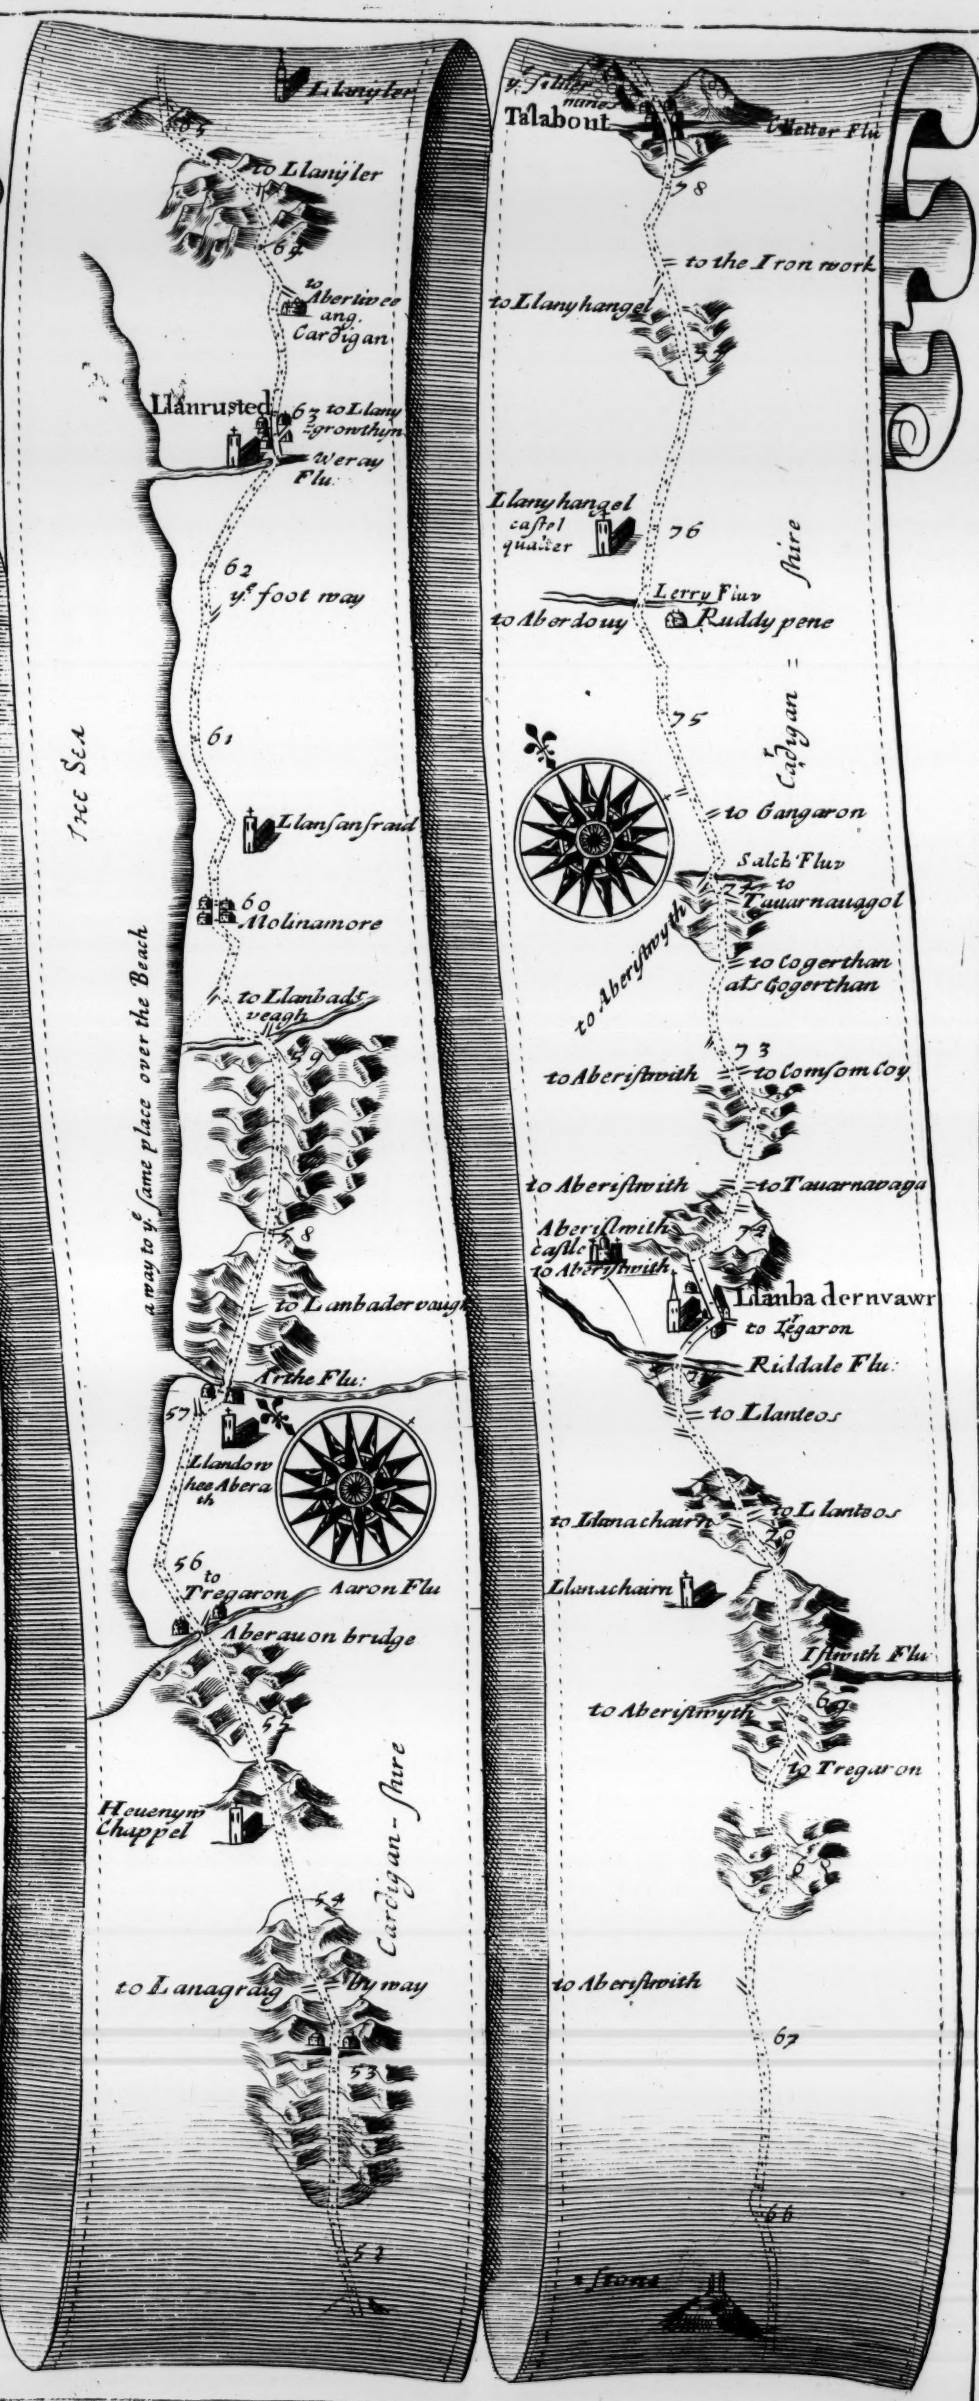 Llanyler
65
to Llanyler
64
to
Aberiwee
ang.
Cardigan
Llanrusted
63 to Llany
=growthyn
Weray
Flu:
62
yᵉ foot way
61
The Sea
Llansansraid
60
Molinamore
to Llanbadr
veagh
59
a way to yᵉ same place over the Beach
58
to Lanbadervaugh
Arthe Flu:
57
Llandow
hee Abera
th
56
to
Tregaron
Aaron Flu
Aberauon bridge
55
Heuenyw
Chappel
Cardigan-shire
54
to Lanagraig
by way
53
52
yᵉ silver
mines
Talabont
Metter Flu
78
to the Iron work
to Llanyhangel
77
Llanyhangel
castel
qualter
76
Cardigan = shire
Lerry Fluv
to Aberdouy
Ruddy pene
75
to Gangaron
Salch Fluv
74
to
Tauarnauggol
to Aberistwyth
to Cogerthan
als Gogerthan
73
to Aberistwith
to Comsom Coy
to Aberistwith
to Tauarnavaga
Aberistwith
castle
to Aberistwith
74
Llanbadernvawr
to Tegaron
Riddale Flu:
to Llanteos
to Llanachairn
to Llanteos
70
Llanachairn
Istwith Flu
69
to Aberistwyth
to Tregaron
68
to Aberistwith
67
66
a stone